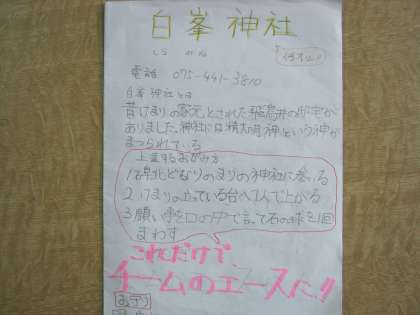 白峯神社
しら みね
電話 075-441-3810
白峯神社とは
昔けまりの家元とされた飛鳥井の邸宅が
ありました。神社には精大明神という神が
まつられている
上達するおがみ方
1.碑北どなりのまりの神社に参る
2.けまりの立っている台へ1人で上がる
3.願い事を口の中で言って石の球を1回
まわす
これだけで、
チームのエースに!!